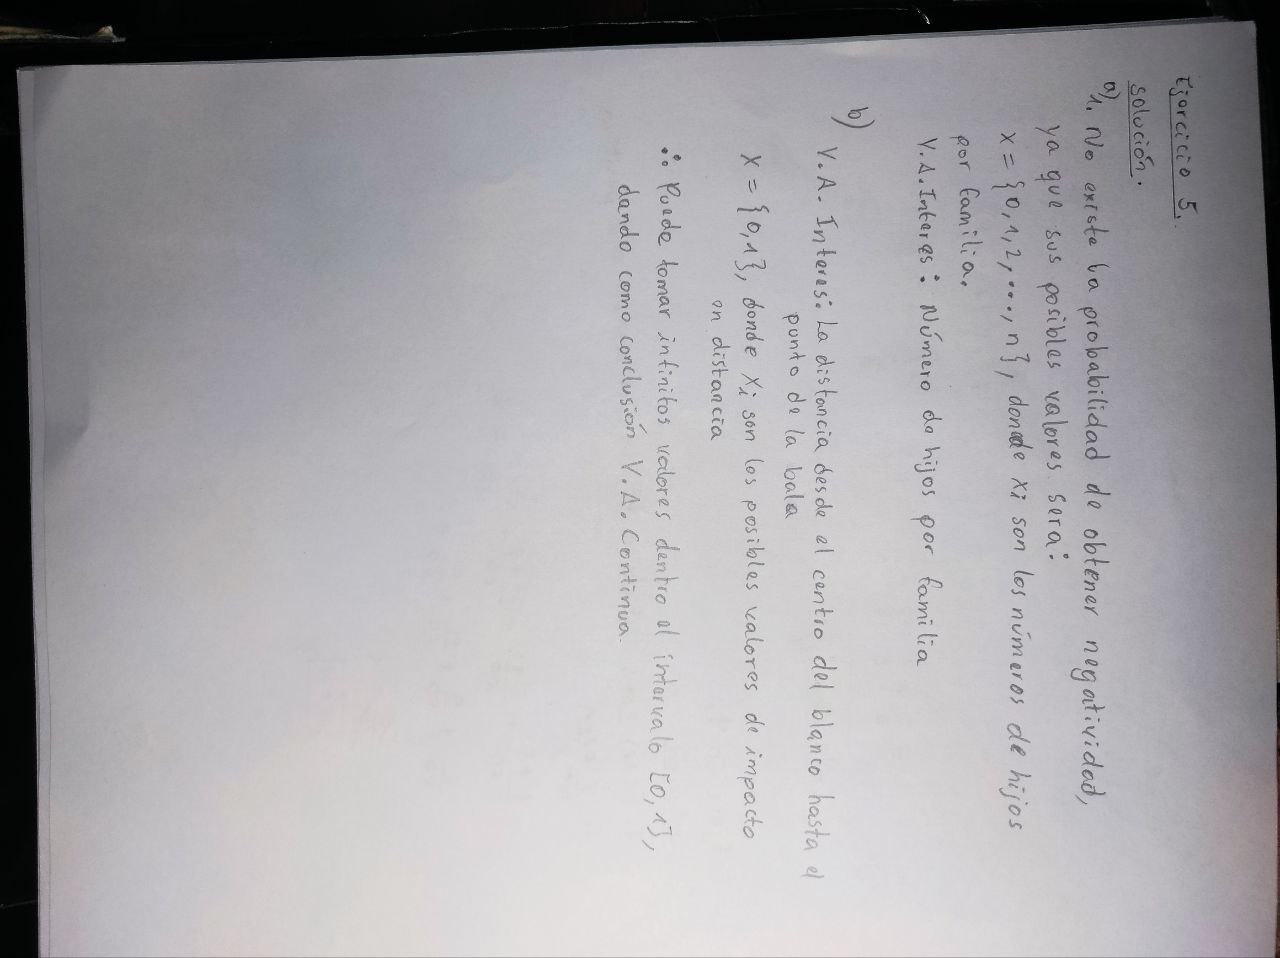 Ejercicio 5.
solución.
a) 1. No existe la probabilidad de obtener negatividad,
ya que sus posibles valores será:
x = {0, 1, 2, ..., n}, donde xi son los números de hijos
por familia.
V.A. Interes: Número de hijos por familia
b)
V.A. Interes: La distancia desde el centro del blanco hasta el
punto de la bala
X = {0, 1}, donde Xi son los posibles valores de impacto
en distancia
∴ Puede tomar infinitos valores dentro el intervalo [0, 1],
dando como conclusión V.A. Continua.